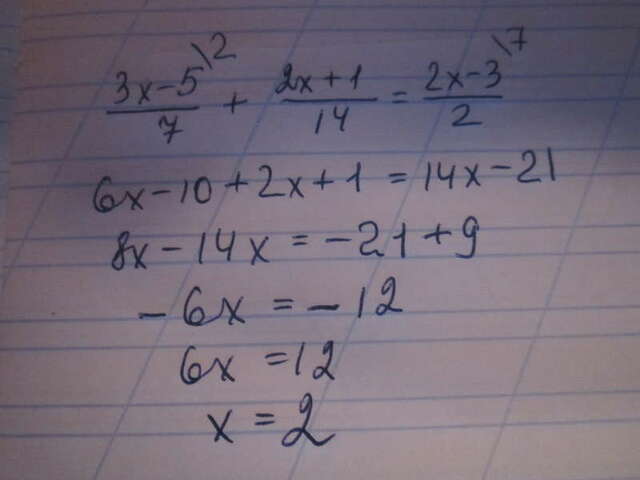 \2 \7
3x-5/7 + 2x+1/14 = 2x-3/2
6x-10+2x+1=14x-21
8x-14x=-21+9
-6x=-12
6x=12
x=2